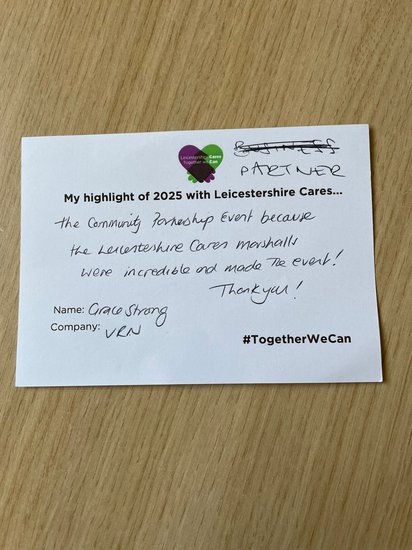 Leicestershire Cares
Together we Can
BUSINESS
PARTNER
My highlight of 2025 with Leicestershire Cares...
the Community Parneship Event because
the Leicestershire Cares marshalls
were incredible and made the event!
Thank you!
Name: Grace Strong
Company: VRN
#TogetherWeCan